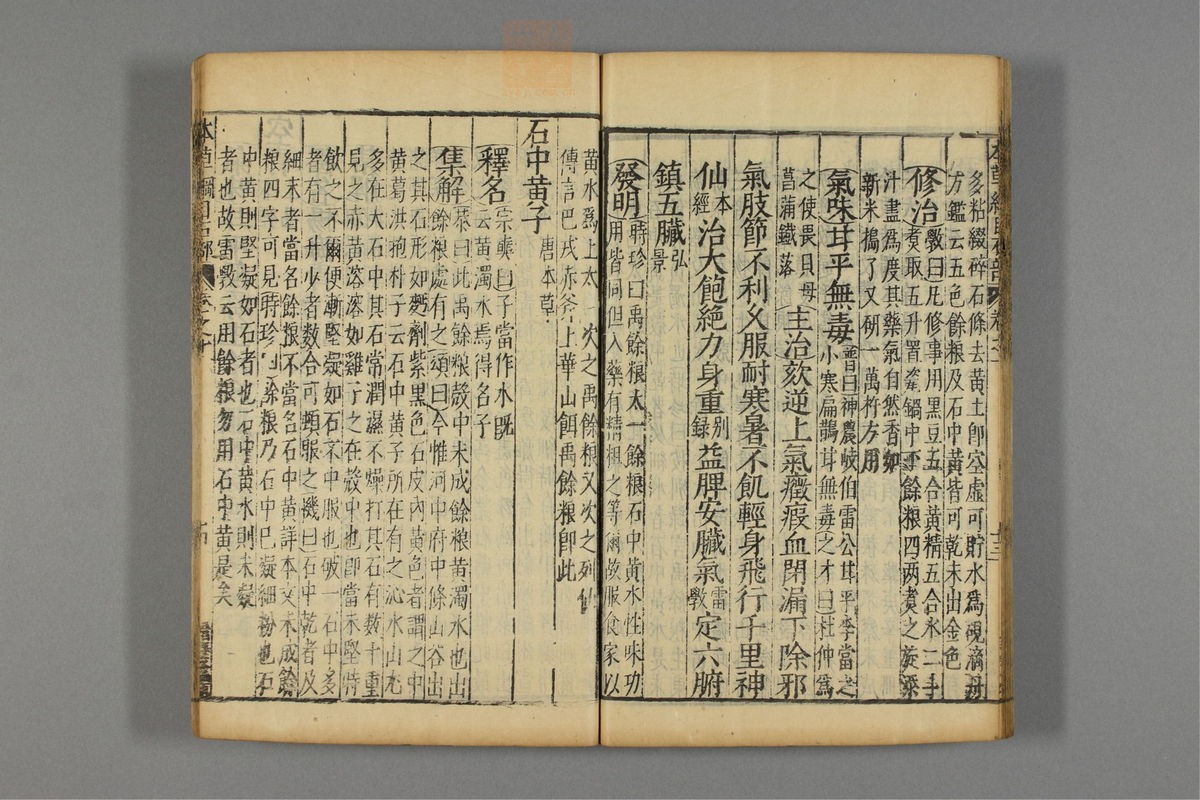 多粘綴碎石滌去黃土即空虛可貯水為硯滴丹
方鑑云五色餘粮及石中黃皆可乾末出金色
修治斅曰凡修事用黑豆五合黃精五合水二斗
煮取五升置瓷鍋中下餘粮四兩煮之旋添
汁盡為度其藥氣自然香如
新米擣了又研一萬杵方用
氣味甘平無毒普曰神農岐伯雷公甘平李當之
小寒扁鵲甘無毒之才曰杜仲為
之使畏貝母
菖蒲鐵落
主治欬逆上氣癥瘕血閉漏下除邪
氣肢節不利久服耐寒暑不飢輕身飛行千里神
仙本經治大飽絕力身重別錄益脾安臟氣雷斅定六腑
鎮五臟弘景
發明時珍曰禹餘粮太一餘粮石中黃水性味功
用皆同但入藥有精粗之等爾故服食家以
黃水為上太 次之禹餘粮又次之列仙
傳言巴戎赤斧上華山餌禹餘粮即此
石中黃子唐本草
釋名宗奭曰子當作水既
云黃濁水焉得名子
集解恭曰此禹餘粮殼中未成餘粮黃濁水也出
餘粮處有之頌曰今惟河中府中條山谷出
之其石形如麪劑紫黑色石皮內黃色者謂之中
黃葛洪抱朴子云石中黃子所在有之沁水山尤
多在大石中其石常潤濕不燥打其石有數十重
見之赤黃溶溶如雞子之在殼中也即當未堅時
飲之不爾便漸堅凝如石不中服也破一石中多
者有一升少者數合可頓服之機曰石中乾者及
細末者當名餘粮不當名石中黃詳本文未成餘
粮四字可見時珍曰餘粮乃石中已凝細粉也石
中黃則堅凝如石者也石中黃水則未凝
者也故雷斅云用餘粮勿用石中黃是矣
本草綱目石部